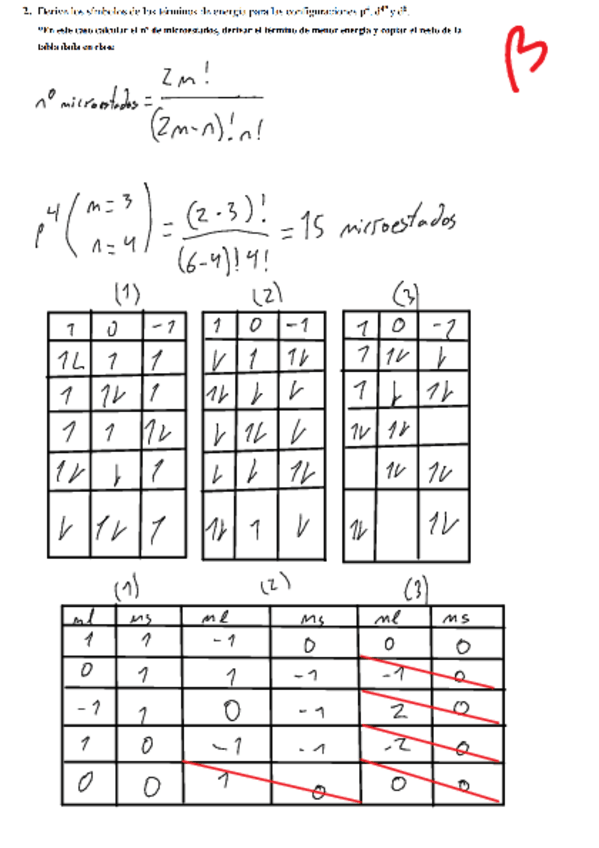 2. Derive los símbolos de los términos de energía para las configuraciones p⁴, d⁴* y d⁸.
*En este caso calcular el nº de microestados, derivar el término de menor energía y copiar el resto de la
tabla dada en clase
β
nº microestados = 2m! / (2m-n)!n!
p⁴ (m=3 n=4) = (2·3)! / (6-4)!4! = 15 microestados
(1) (2) (3)
1 0 -1 1 0 -1 1 0 -1
1L 1 1 ⇂ 1 1⇂ 1 1⇂ ⇂
1 1⇂ 1 1⇂ ⇂ ⇂ 1 ⇂ 1⇂
1 1 1⇂ ⇂ 1⇂ ⇂ 1⇂ 1⇂
1⇂ ⇂ 1 ⇂ ⇂ 1⇂ 1⇂ 1⇂
⇂ 1⇂ 1 1⇂ 1 ⇂ 1⇂ 1⇂
(1) (2) (3)
ml ms ml ms ml ms
1 1 -1 0 0 0
0 1 1 -1 -1 0
-1 1 0 -1 2 0
1 0 -1 -1 -2 0
0 0 1 0 0 0